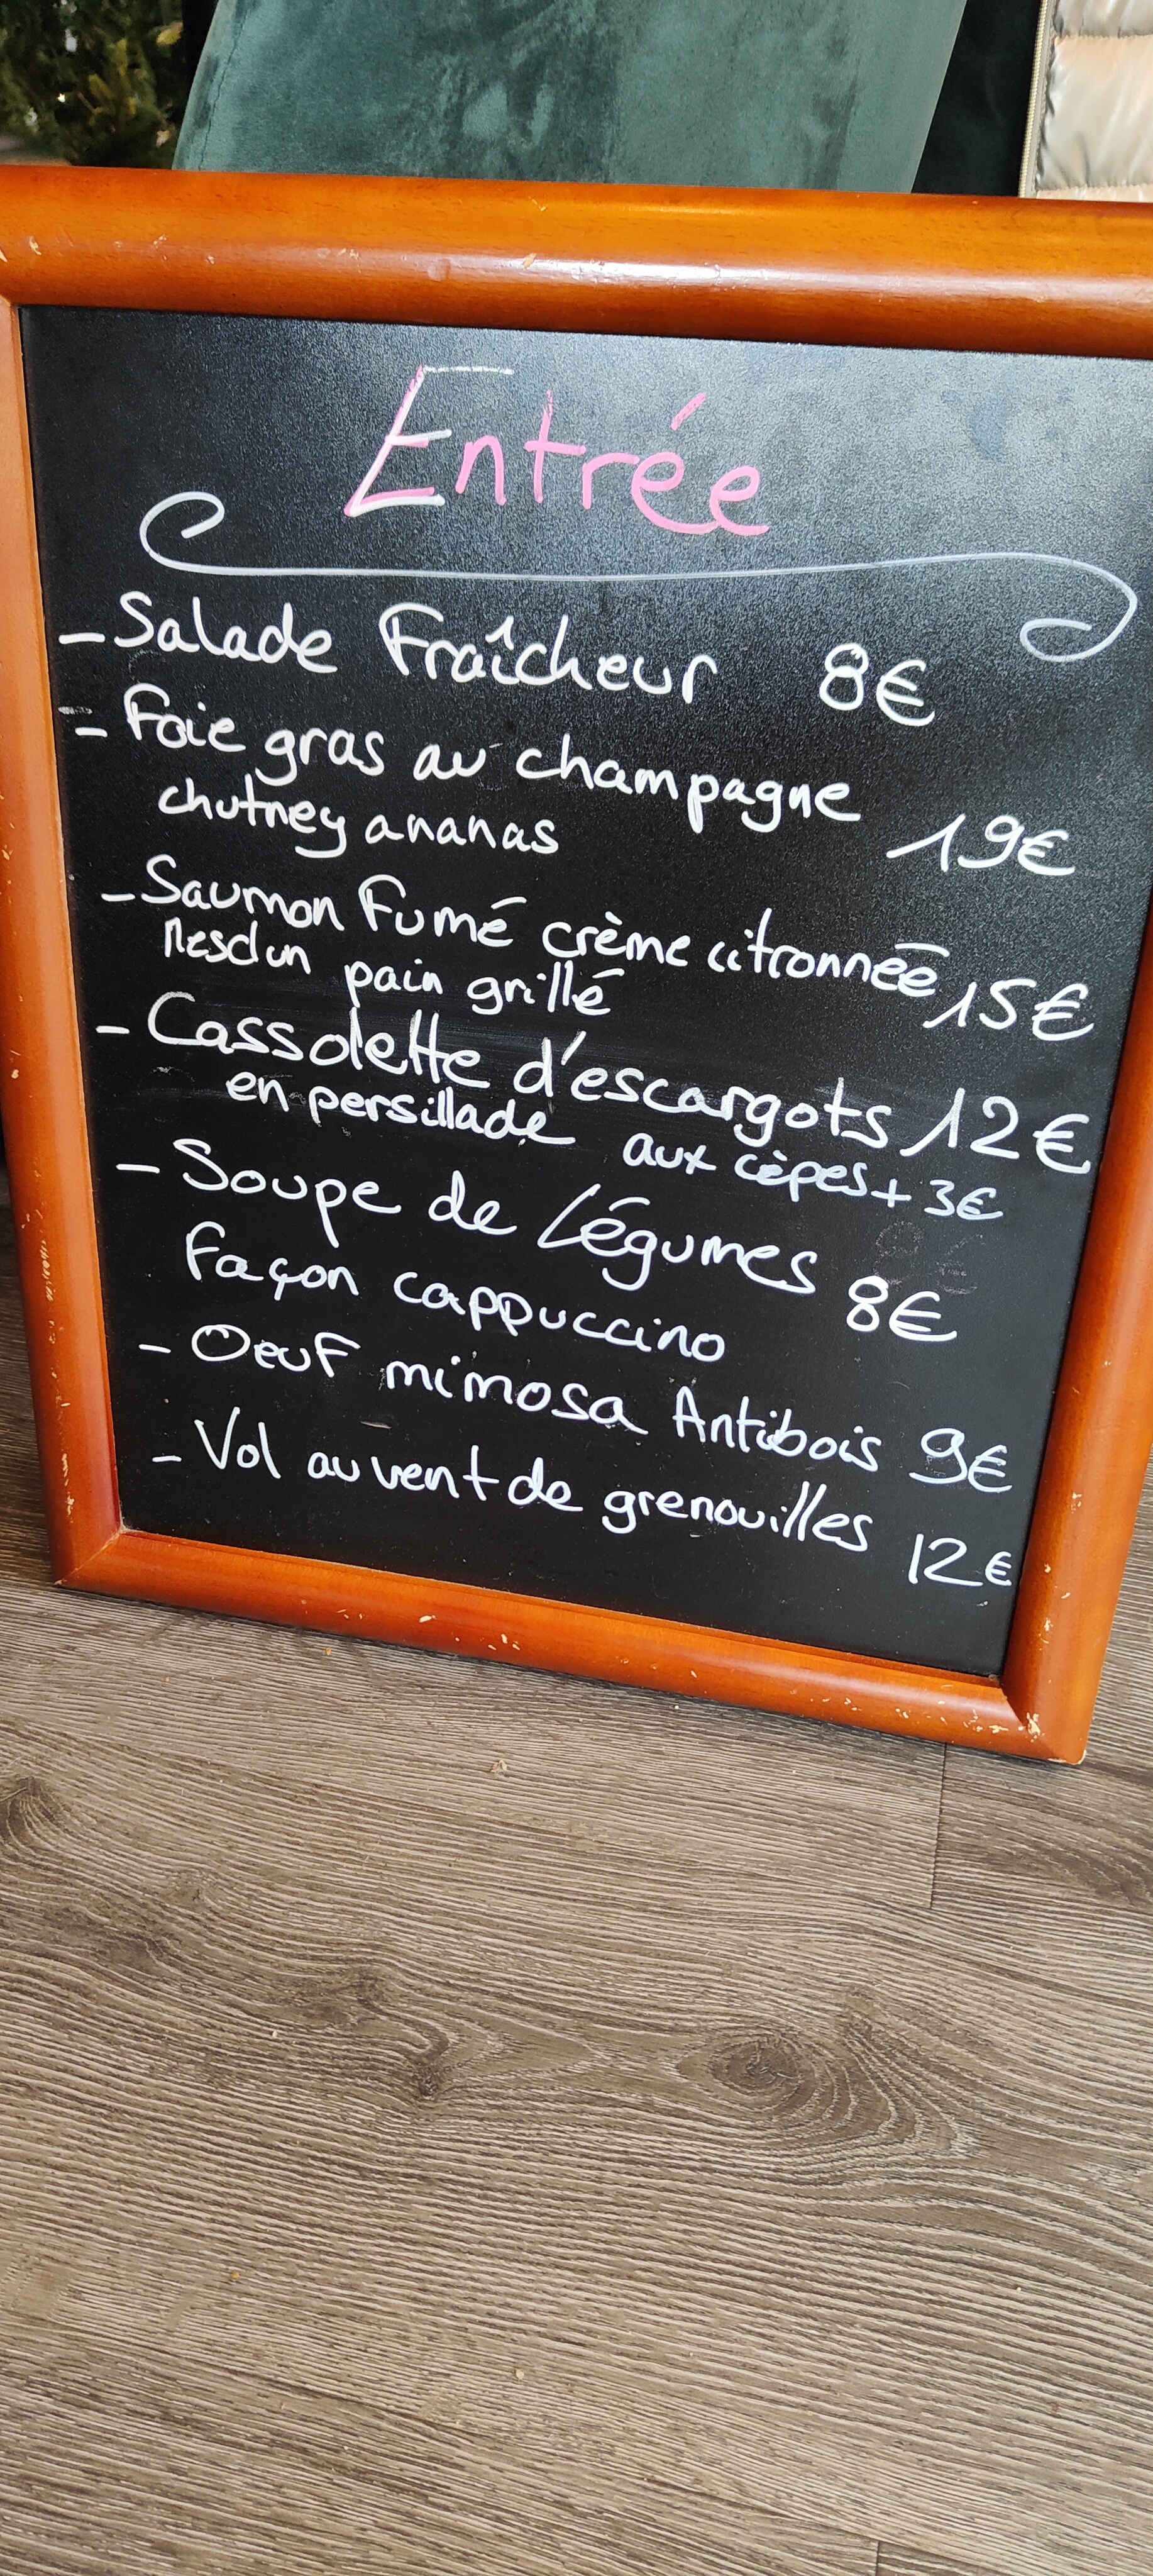 Entrée
- Salade Fraîcheur 8€
- Foie gras au champagne
chutney ananas 19€
- Saumon Fumé crème citronnée 15€
Mesclun pain grillé
- Cassolette d'escargots 12€
en persillade aux cèpes + 3€
- Soupe de Légumes 8€
Façon cappuccino
- Oeuf mimosa Antibois 9€
- Vol au vent de grenouilles 12€